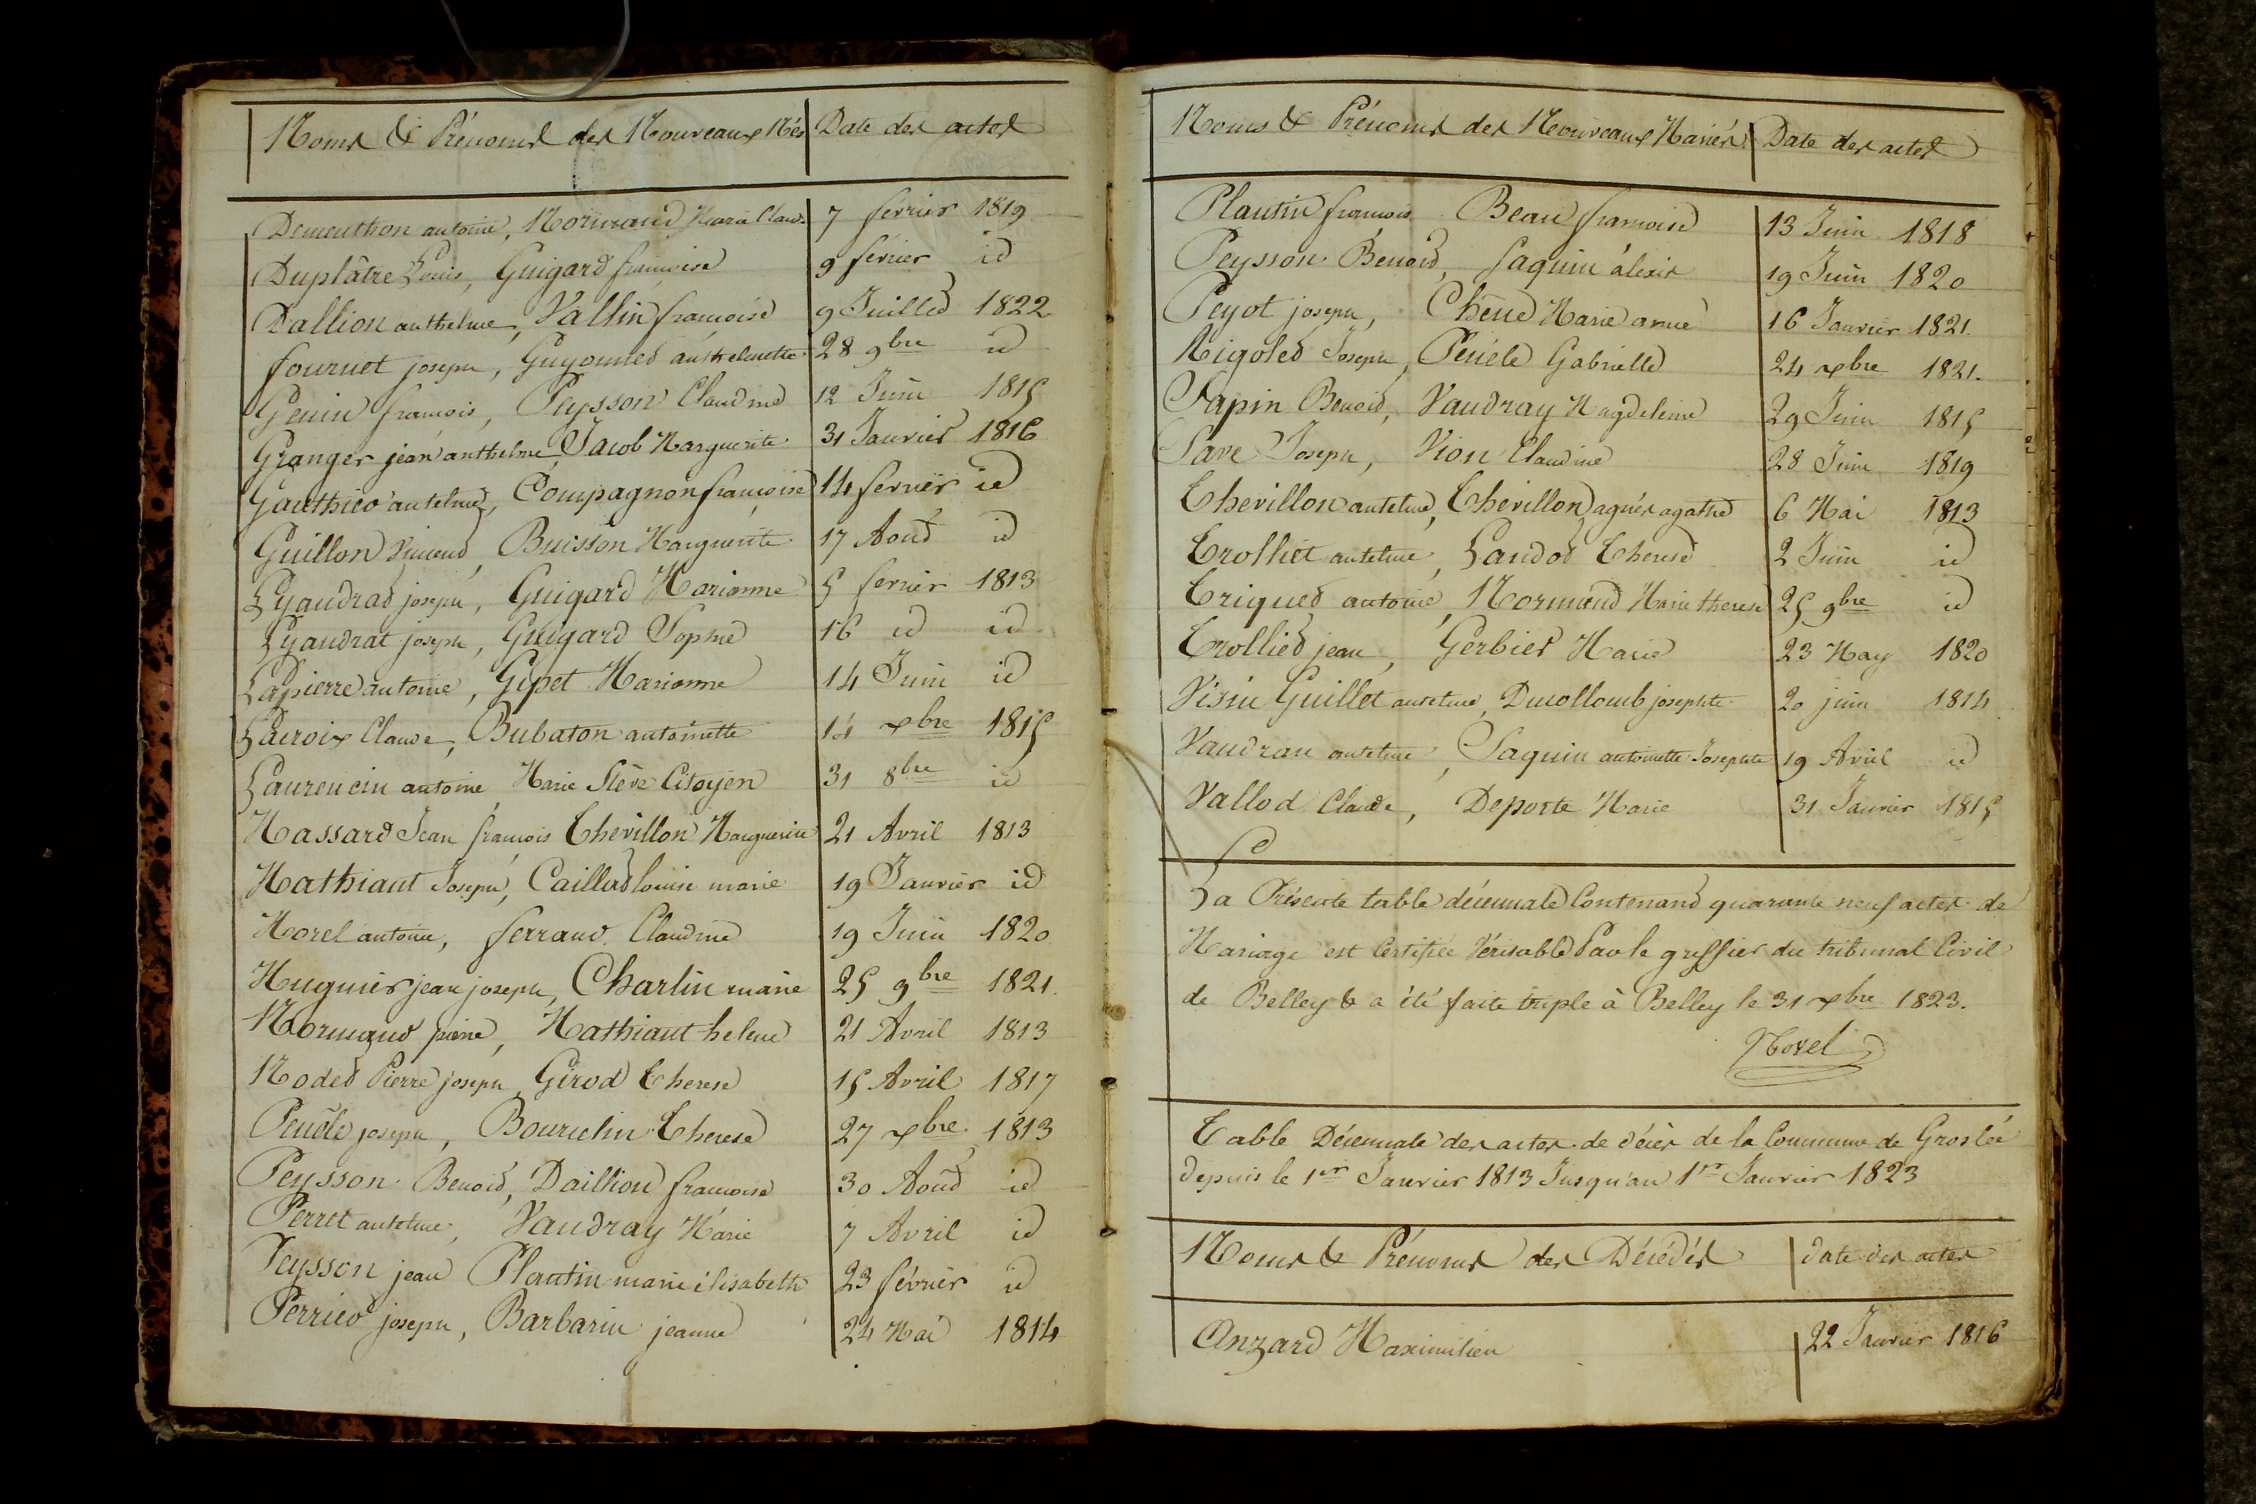 Noms & Prénoms des Nouveaux Nés Date des actes
Demeuthon antoine, Normand Marie Claud. 7 fevrier 1819
Duplâtre Louis, Guigard françoise 9 février id
Dallion anthelme, Vallin françoise 9 Juillet 1822
fournet joseph, Guyonnet anthelmette 28 9bre id
Genin françois, Peysson Claudine 12 Juin 1815
Granger jean anthelme, Jacob Marguerite 31 Janvier 1816
Gauthier antelme, Compagnon françoise 14 fevrier id
Guillon Vincent, Buisson Marguerite 17 Aout id
Lyaudrat joseph, Guigard Marianne 5 fevrier 1813
Lyaudrat joseph, Guigard Sophie 16 id id
Lapierre antoine, Gipet Marianne 14 Juin id
Lacroix Claude, Bubaton antoinette 14 xbre 1815
Laurencin antoine Marie Stève Citoyen 31 8bre id
Massard Jean françois Thevillon Marguerite 21 Avril 1813
Mathiant Joseph, Caillat louise marie 19 Janvier id
Morel antoine, ferrand Claudine 19 Juin 1820
Mugnier jean joseph, Charlin marie 25 9bre 1821.
Normand pierre, Mathiant helene 21 Avril 1813
Nodet Pierre joseph Girod Therese 15 Avril 1817
Penèle joseph, Bourichin Therese 27 xbre 1813
Peysson Benoit, Daillion francoise 30 Août id
Perret antelme, Vaudray Marie 7 Avril id
Peysson jean Plantin marie élisabeth 23 février id
Perrier joseph, Barbarin jeanne 24 Mai 1814
Noms & Prénoms des Nouveaux Mariés Date des actes
Plantin francois Beau francoise 13 Juin 1818
Peysson Benoit, Saquin alexis 19 Juin 1820
Peyot joseph, Chêne Marie anne 16 Janvier 1821.
Rigolet Joseph, Penèle Gabrielle 24 xbre 1821.
Sapin Benoit, Vaudray Magdeleine 29 Juin 1815
Save Joseph, Vion Claudine 28 Juin 1819
Thevillon antelme, Thevillon agnès agathe 6 Mai 1813
Trolliet antelme, Landot Therese 2 Juin id
Triquet antoine, Normand Marie therese 25 9bre id
Trolliet jean, Gerbier Marie 23 May 1820
Visin Guillet antelme, Ducollomb josephte 20 juin 1814
Vaudran antelme, Saquin antoinette Josephte 19 Avril id
Vallod Claude, Deporte Marie 31 Janvier 1815
La Présente table décennale Contenant quarante neuf actes de
Mariage est Certifiée Véritable Par le greffier du tribunal Civil
de Belley & a été faite triple à Belley le 31 xbre 1823.
Morel
Table Décennale des actes de décès de la Commune de Groslée
depuis le 1er Janvier 1813 Jusqu'au 1er Janvier 1823
Noms & Prénoms des Décédés date des actes
Anzard Maximilien 22 Janvier 1816